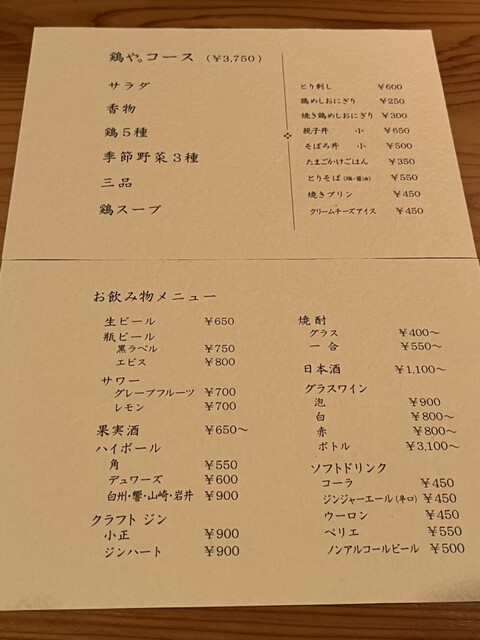 鶏や。コース （￥3,750）
サラダ
香物
鶏５種
季節野菜３種
三品
鶏スープ
とり刺し ￥600
鶏めしおにぎり ￥250
焼き鶏めしおにぎり ￥300
親子丼 小 ￥650
そぼろ丼 小 ￥500
たまごかけごはん ￥350
とりそば（塩・醤油） ￥550
焼きプリン ￥450
クリームチーズアイス ￥450
お飲み物メニュー
生ビール ￥650
瓶ビール
黒ラベル ￥750
エビス ￥800
サワー
グレープフルーツ ￥700
レモン ￥700
果実酒 ￥650～
ハイボール
角 ￥550
デュワーズ ￥600
白州・響・山崎・岩井 ￥900
クラフト ジン
小正 ￥900
ジンハート ￥900
焼酎
グラス ￥400～
一合 ￥550～
日本酒 ￥1,100～
グラスワイン
泡 ￥900
白 ￥800～
赤 ￥800～
ボトル ￥3,100～
ソフトドリンク
コーラ ￥450
ジンジャーエール（辛口） ￥450
ウーロン ￥450
ペリエ ￥550
ノンアルコールビール ￥500